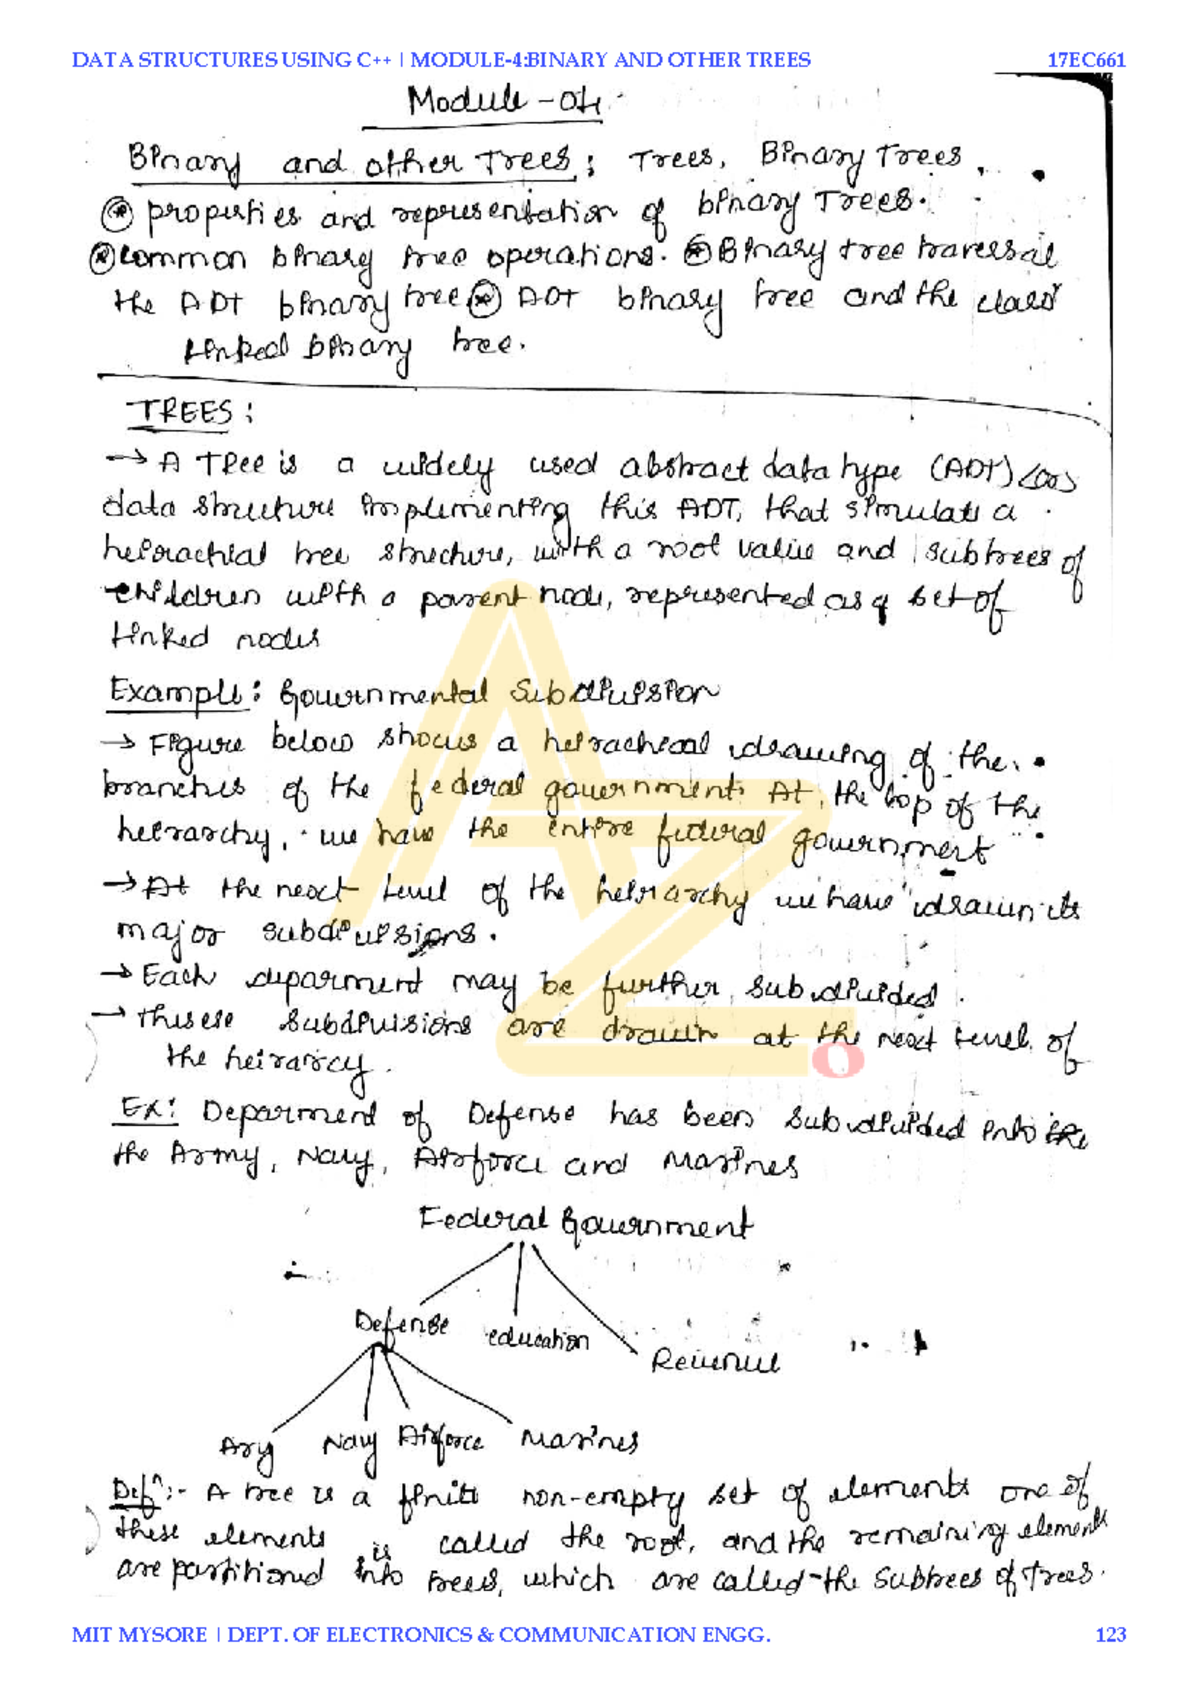 DATA STRUCTURES USING C++ | MODULE-4:BINARY AND OTHER TREES 17EC661
Module - 04
Binary and other Trees: Trees, Binary Trees,
properties and representation of binary Trees.
common binary tree operations. Binary tree traversal
the ADT binary tree ADT binary tree and the class
Linked binary tree.
TREES:
→ A Tree is a widely used abstract data type (ADT) (or)
data structure implementing this ADT, that simulates a
heirrachial tree structure, with a root value and subtrees of
children with a parent node, represented as a set of
linked nodes
Example: Governmental Subdivision
→ Figure below shows a heirachical drawing of the
branches of the federal government. At the top of the
heirarchy, we have the entire federal government
→ At the next level of the heirarchy we have drawn its
major subdivisions.
→ Each deparment may be further subdivided.
→ These subdivisions are drawn at the next level of
the heirarcy.
Ex: Deparment of Defense has been subdivided into the
the Army, Navy, Airforce and Marines
Federal Government
Defense education Revenue
Ary Navy Airforce Marines
Defn:- A tree is a finite non-empty set of elements one of
these elements is called the root, and the remaining elements
are partitioned into trees, which are called the subtrees of Trees.
MIT MYSORE | DEPT. OF ELECTRONICS & COMMUNICATION ENGG. 123
AZO